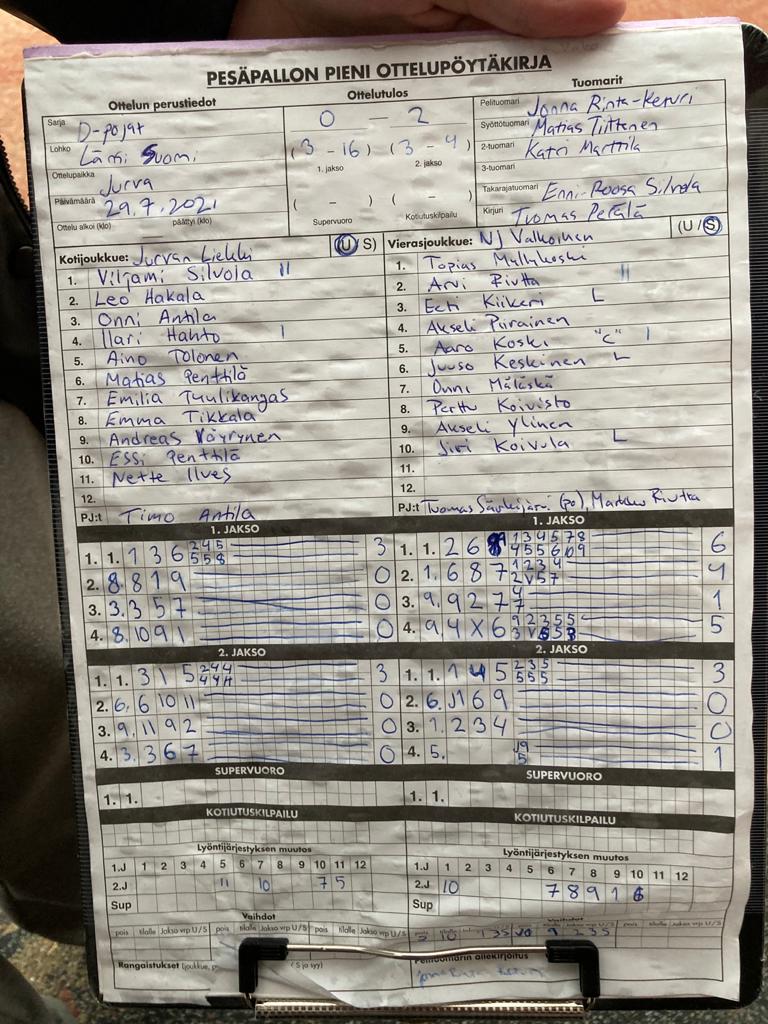 PESÄPALLON PIENI OTTELUPÖYTÄKIRJA
Ottelun perustiedot
Sarja D-pojat
Lohko Länsi Suomi
Ottelupaikka Jurva
Päivämäärä 29.7.2021
Ottelu alkoi (klo) päättyi (klo)
Ottelutulos
0 - 2
(3 - 16) (3 - 4)
1. jakso 2. jakso
( - ) ( - )
Supervuoro Kotiutuskilpailu
Tuomarit
Pelituomari Jonna Rinta-Keturi
Syöttötuomari Matias Tiittanen
2-tuomari Katri Marttila
3-tuomari
Takarajatuomari Enni-Roosa Silvola
Kirjuri Tuomas Perälä
Kotijoukkue: Jurvan Liekki (U/S)
1. Viljami Silvola II
2. Leo Hakala
3. Onni Antila
4. Ilari Hahto I
5. Aino Tolonen
6. Matias Penttilä
7. Emilia Tuulikangas
8. Emma Tikkala
9. Andreas Väyrynen
10. Essi Penttilä
11. Nette Ilves
12.
PJ:t Timo Antila
Vierasjoukkue: NJ Valkoinen (U/S)
1. Topias Myllykoski
2. Arvi Riutta II
3. Eeti Kiikeri L
4. Akseli Piirainen
5. Aaro Koski "C" I
6. Juuso Keskinen L
7. Onni Mäläskä
8. Perttu Koivisto
9. Akseli Ylinen
10. Jiri Koivula L
11.
12.
PJ:t Tuomas (po), Markku Riutta
1. JAKSO
1. 1. 1 3 6 245 558 3
2. 8. 8 1 9 0
3. 3. 3 5 7 0
4. 8. 10 9 1 0
2. JAKSO
1. 1. 3 1 5 244 3
2. 6. 6 10 11 0
3. 9. 11 9 2 0
4. 3. 3 6 7 0
SUPERVUORO
1. 1.
KOTIUTUSKILPAILU
1. JAKSO
1. 1. 2 6 134578 6
2. 1. 6 8 7 1234 2V57 4
3. 9. 9 2 7 4 7 1
4. 9. 4 X 6 92355 5
2. JAKSO
1. 1. 1 4 5 235 555 3
2. 6. J1 6 9 0
3. 1. 2 3 4 0
4. 5. J9 5 1
SUPERVUORO
1. 1.
KOTIUTUSKILPAILU
Lyöntijärjestyksen muutos
1.J 1 2 3 4 5 6 7 8 9 10 11 12
2.J 11 10 7 5
Sup
Lyöntijärjestyksen muutos
1.J 1 2 3 4 5 6 7 8 9 10 11 12
2.J 10 7 8 9 1 6
Sup
Vaihdot
pois tilalle Jakso vrp U/S pois tilalle Jakso vrp U/S pois tilalle Jakso vrp U/S
Rangaistukset (joukkue,
(S ja syy)
Vaihdot
allekirjoitus